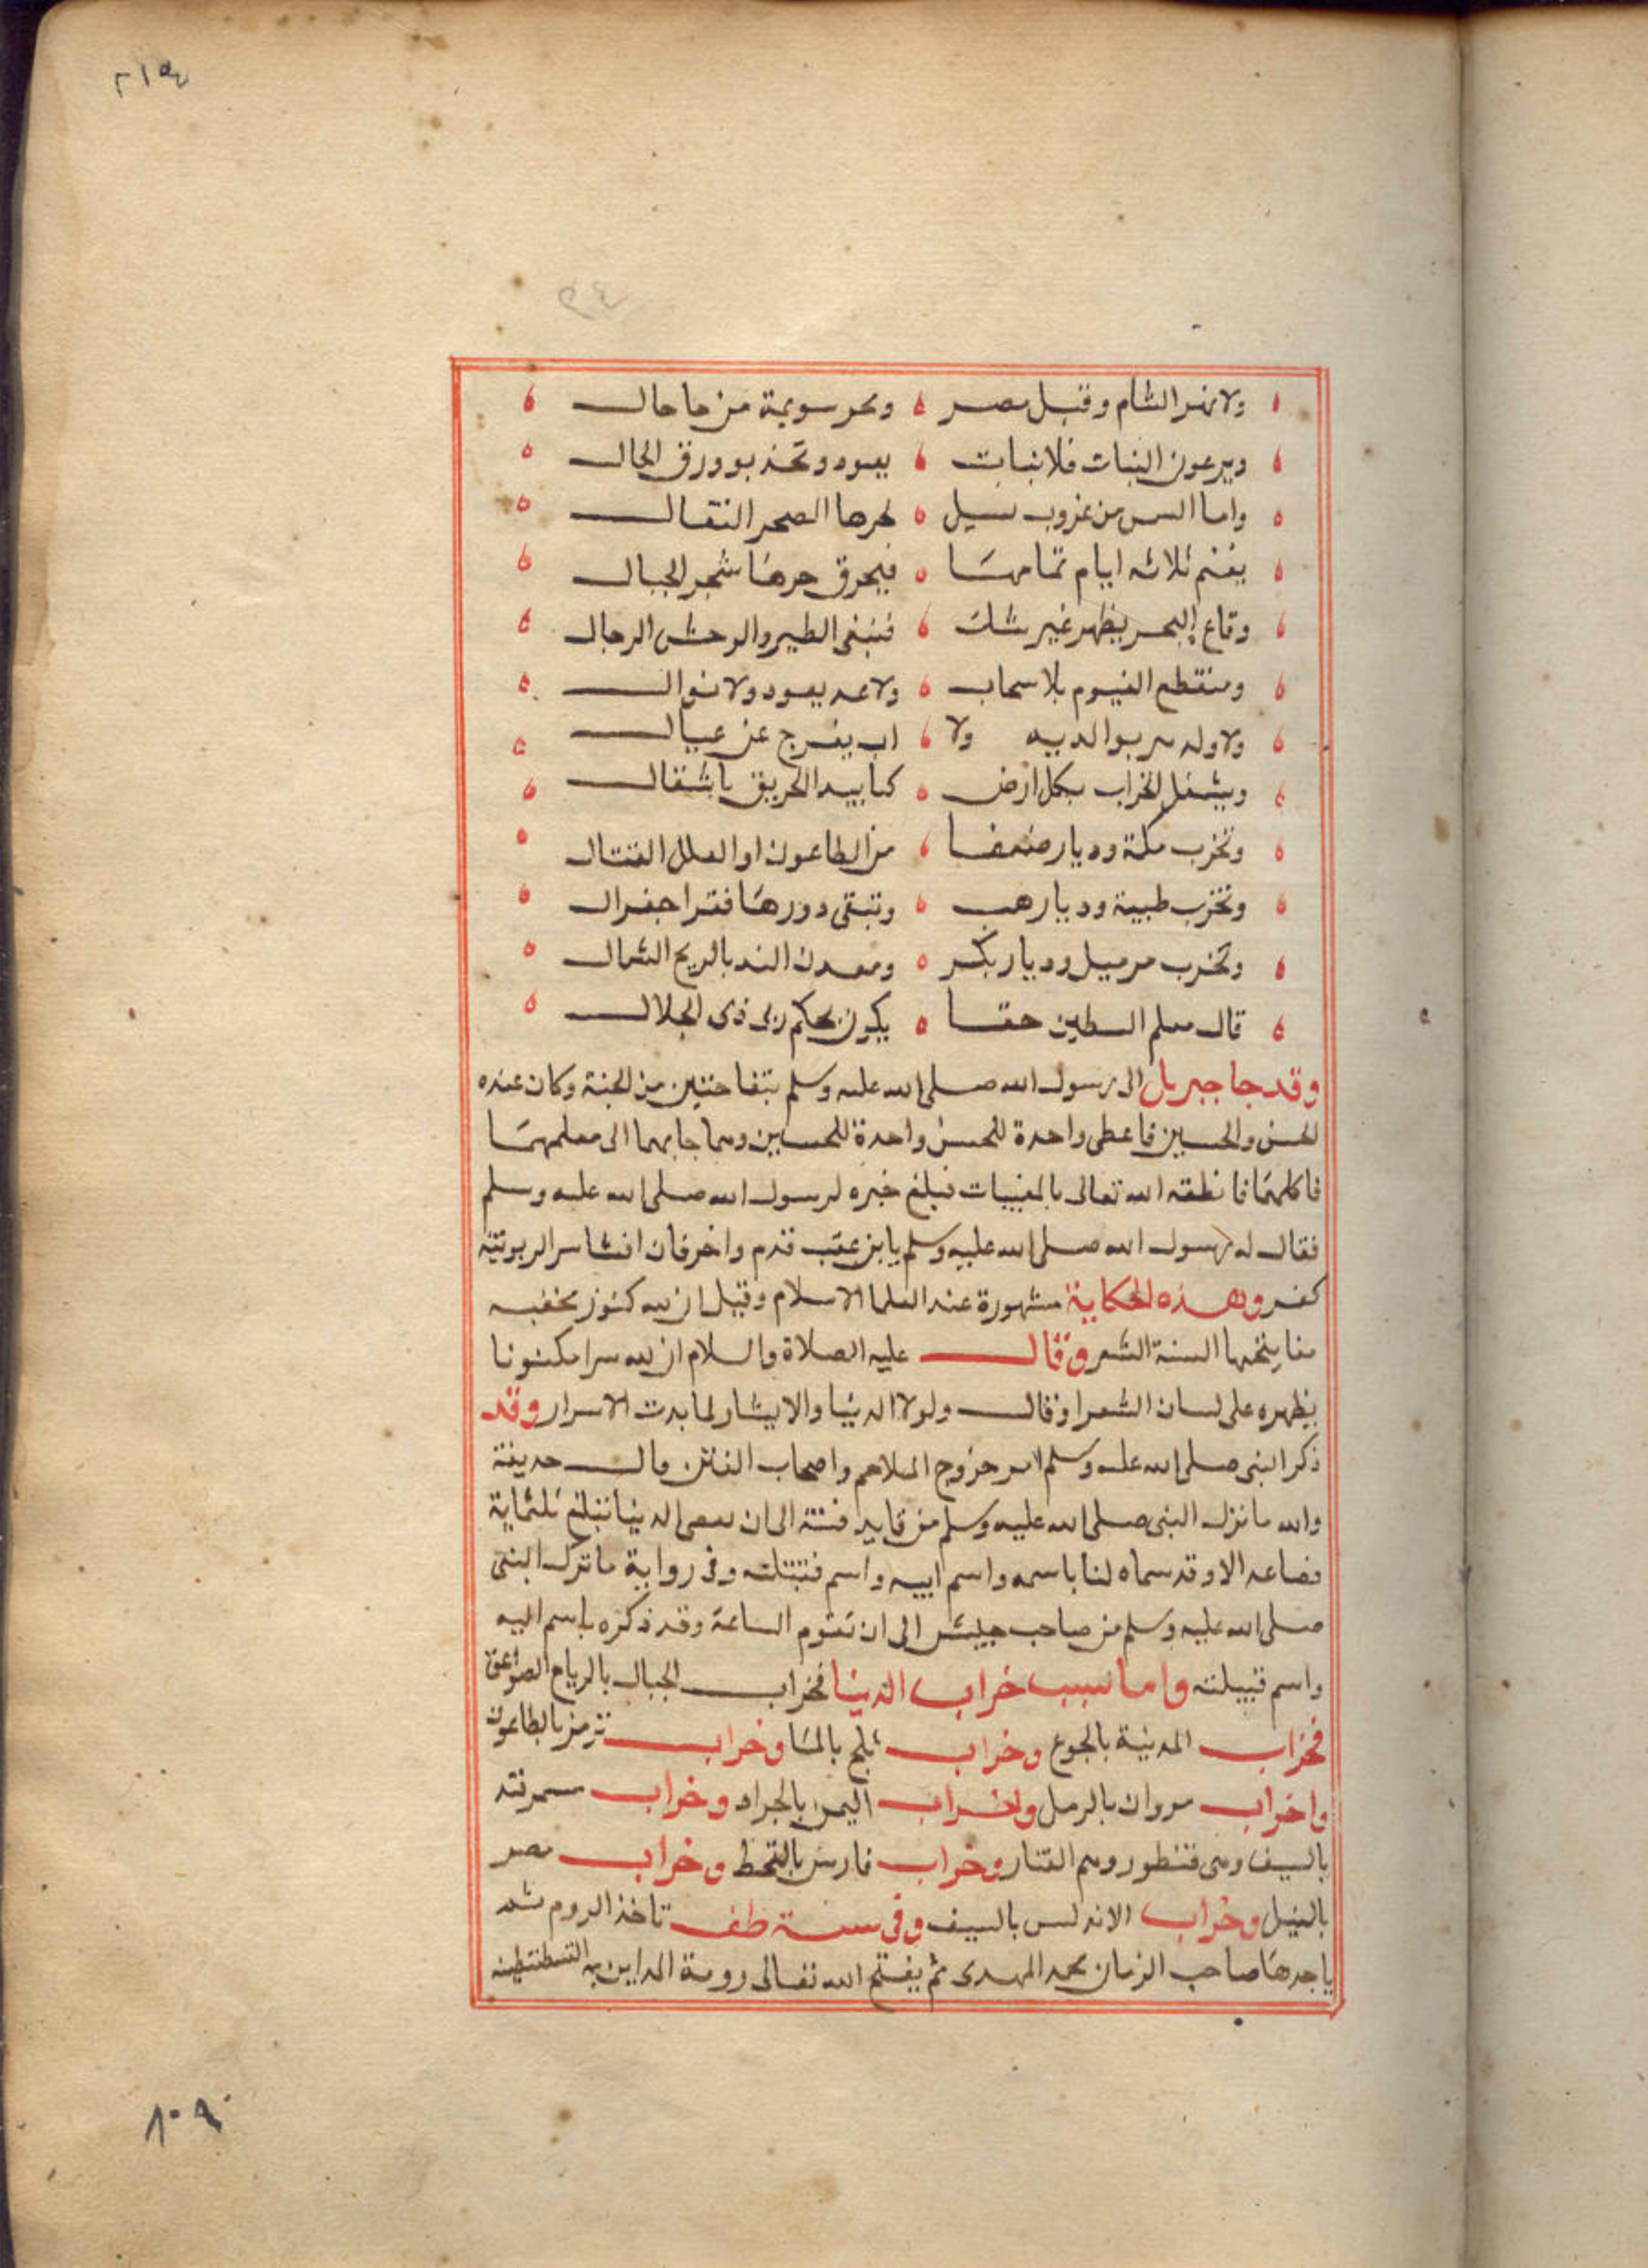 ٢١٥٤
٣٤
ولا نهر الشام وقبل مصر وبحر سويمة من حاحال
ويرعون النبات فلا نبات يعود وتخذبو ورق الخال
واما الشمس من غروب لحرها الصخر النقال
يغنم ثلاثه ايام تمامها فيحرق حرها شجر الجبال
وقاع البحر يظهر غير شك فتبنى الطير والوحش الرحال
ومنقطع الغيوم بلا سحاب ولا يعود ولا نوال
ولا ولد بوالديه ولا اب يفرج عن عيال
ويشغل الخراب بكل ارض كما بيد الحريق باشتقال
وتخرب مكة وديار ضعفا من الطاعون او العلل القتال
وتخرب طيبة وديار هب وتبقى دورها
وتخرب وديار بكر ومعدن الند بالريح الشمال
قال معلم السبطين حقا يكون بحكم ربى ذى الجلال
وقد جا جبريل الى رسول الله صلى الله عليه وسلم بتفاحتين من الجنة وكان عنده
الحسن والحسين فاعطى واحدة للحسن واحدة للحسين وهما جا بهما الى معلمهما
فاكلهما فانطقه الله تعالى بالمغيبات فبلغ خبره لرسول الله صلى الله عليه وسلم
فقال له رسول الله صلى الله عليه وسلم يا بن عقب قدم واخر فان افشا سر الربوبية
كفر وهذه الحكاية مشهورة عند العلما الاسلام وقيل ان لله كنوز مخفيه
السنة الشعر وقال عليه الصلاة والسلام ان لله سرا مكنونا
يظهره على لسان الشعرا وقال ولولا الدنيا والايشار لما بدت الاسرار وقد
ذكر النبى صلى الله عليه وسلم امر خروج الملاحم واصحاب الفتن قال حديفة
والله ما نزل النبى صلى الله عليه وسلم من قايد فتنة الى ان الدنيا تبلغ ثلثماية
فصاعد الا وقد سماه لنا باسمه واسم ابيه واسم قبيلته وفى رواية ما ترك النبى
صلى الله عليه وسلم من صاحب جيش الى ان تقوم الساعة وقد ذكره باسم ابيه
واسم قبيلته واما سبب خراب الدنيا فخراب الجبال بالرياح الصواعق
فخراب المدينة بالجوع وخراب بلخ بالما وخراب ترمز بالطاعون
واخراب مروان بالرمل واخراب اليمن بالجراد وخراب سمرقند
بالسيف وبنى قنطور وهم التتار وخراب فارس بالقحط وخراب مصر
بالنيل وخراب الاندلس بالسيف وفى سنة طف تاخذ الروم
ياخدها صاحب الزمان محمد المهدى ثم يفتح الله تعالى رومة المداين القسطنطينيه
٨٠٩